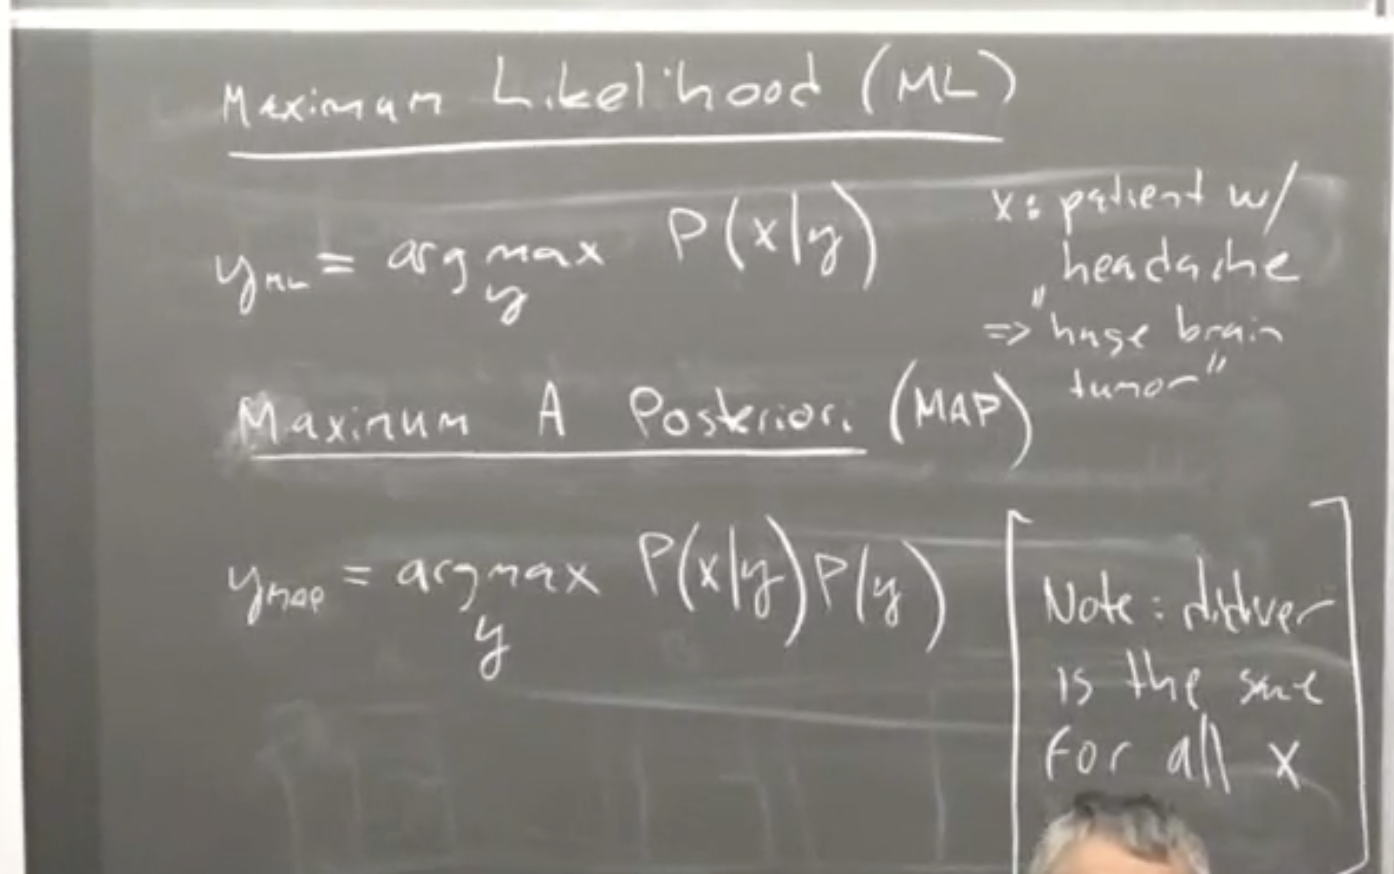 Maximum Likelihood (ML)
y_ML = arg max_y P(x|y)
x: patient w/
headache
=> "huge brain
tumor"
Maximum A Posteriori (MAP)
y_MAP = argmax_y P(x|y)P(y)
Note:
is the same
for all x